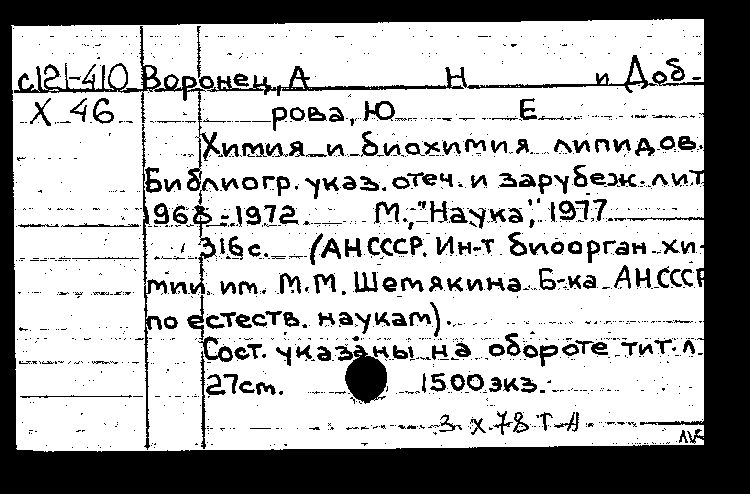 с121-410 Воронец, А Н и Доб-
Х 46 рова, Ю Е
Химия и биохимия липидов.
Библиогр. указ. отеч. и зарубеж. лит
1968-1972. М., "Наука", 1977
316с. (АН СССР. Ин-т биоорган хи-
мии им. М.М. Шемякина Б-ка АН СССР
по естеств. наукам).
Сост. указаны на обороте тит. л.
27см. 1500 экз.
3 X 78 Т-А